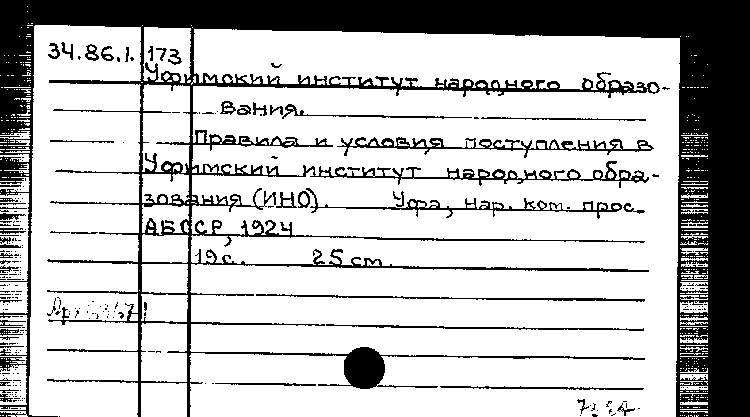 34.86.1. 173
Уфимский институт народного образо-
вания.
Правила и условия поступления в
Уфимский институт народного обра-
зования (ИНО). Уфа, нар. ком. прос.
АБССР, 1924
19с. 25 см.